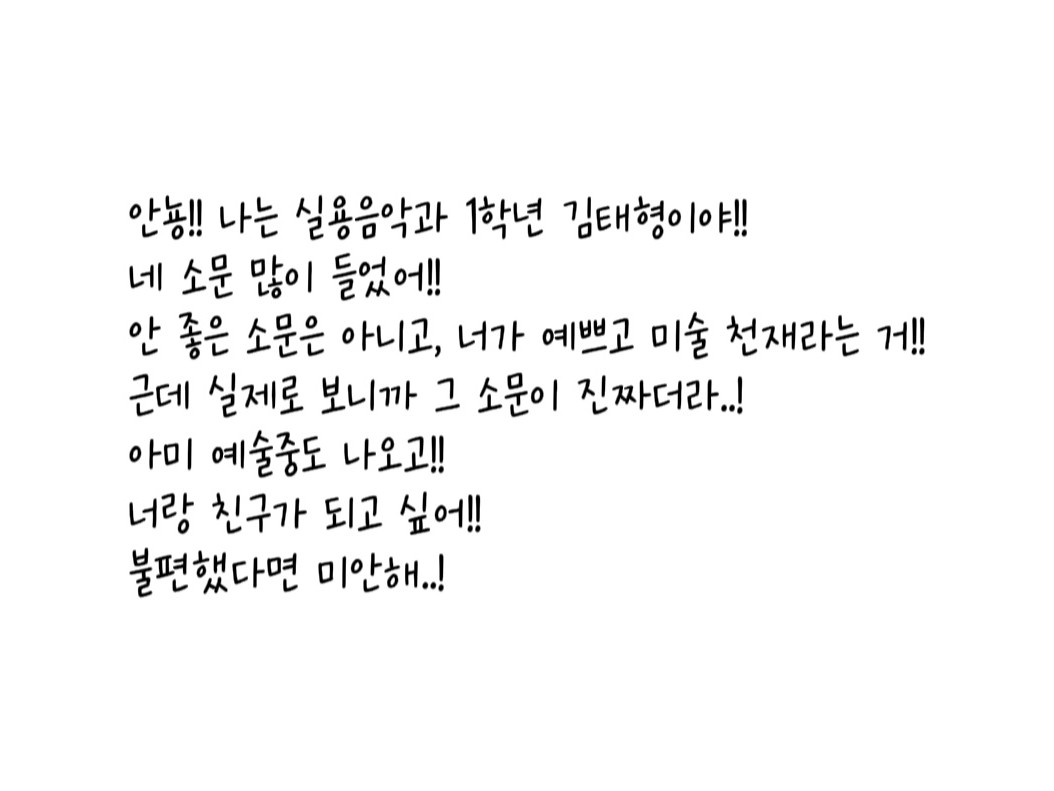 안뇽!! 나는 실용음악과 1학년 김태형이야!!
네 소문 많이 들었어!!
안 좋은 소문은 아니고, 너가 예쁘고 미술 천재라는 거!!
근데 실제로 보니까 그 소문이 진짜더라..!
아미 예술중도 나오고!!
너랑 친구가 되고 싶어!!
불편했다면 미안해..!